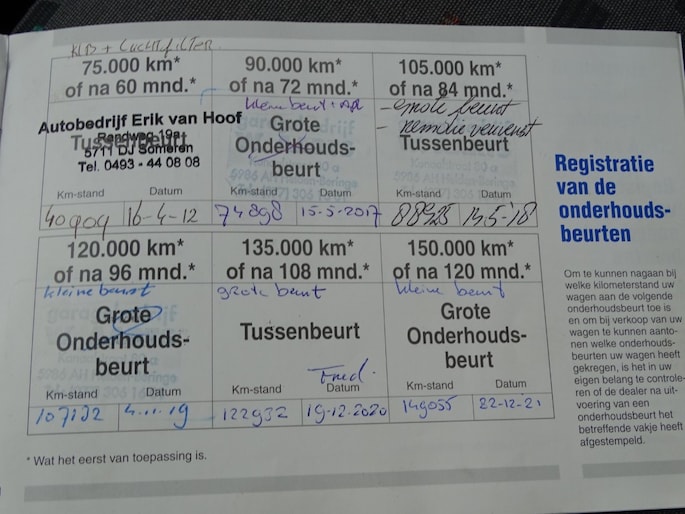 KLB + LUCHTFILTER
75.000 km*
of na 60 mnd.*
Autobedrijf Erik van Hoof
Randweg 19a
5711 DJ Someren
Tel. 0493 - 44 08 08
Tussenbeurt
Km-stand Datum
40909 16-4-12
90.000 km*
of na 72 mnd.*
kleine beurt
Grote
Onderhouds-
beurt
Km-stand Datum
74898 15-5-2017
105.000 km*
of na 84 mnd.*
- Grote beurt
- Remolie ververst
Tussenbeurt
Km-stand Datum
88925 14-5-'18
120.000 km*
of na 96 mnd.*
kleine beurt
Grote
Onderhouds-
beurt
Km-stand Datum
107132 4-11-19
135.000 km*
of na 108 mnd.*
grote beurt
Tussenbeurt
Km-stand Datum
122932 19-12-2020
150.000 km*
of na 120 mnd.*
kleine beurt
Grote
Onderhouds-
beurt
Km-stand Datum
149055 22-12-21
* Wat het eerst van toepassing is.
Registratie
van de
onderhouds-
beurten
Om te kunnen nagaan bij
welke kilometerstand uw
wagen aan de volgende
onderhoudsbeurt toe is
en om bij verkoop van uw
wagen te kunnen aanto-
nen welke onderhouds-
beurten uw wagen heeft
gekregen, is het in uw
eigen belang te controle-
ren of de dealer na uit-
voering van een
onderhoudsbeurt het
betreffende vakje heeft
afgestempeld.